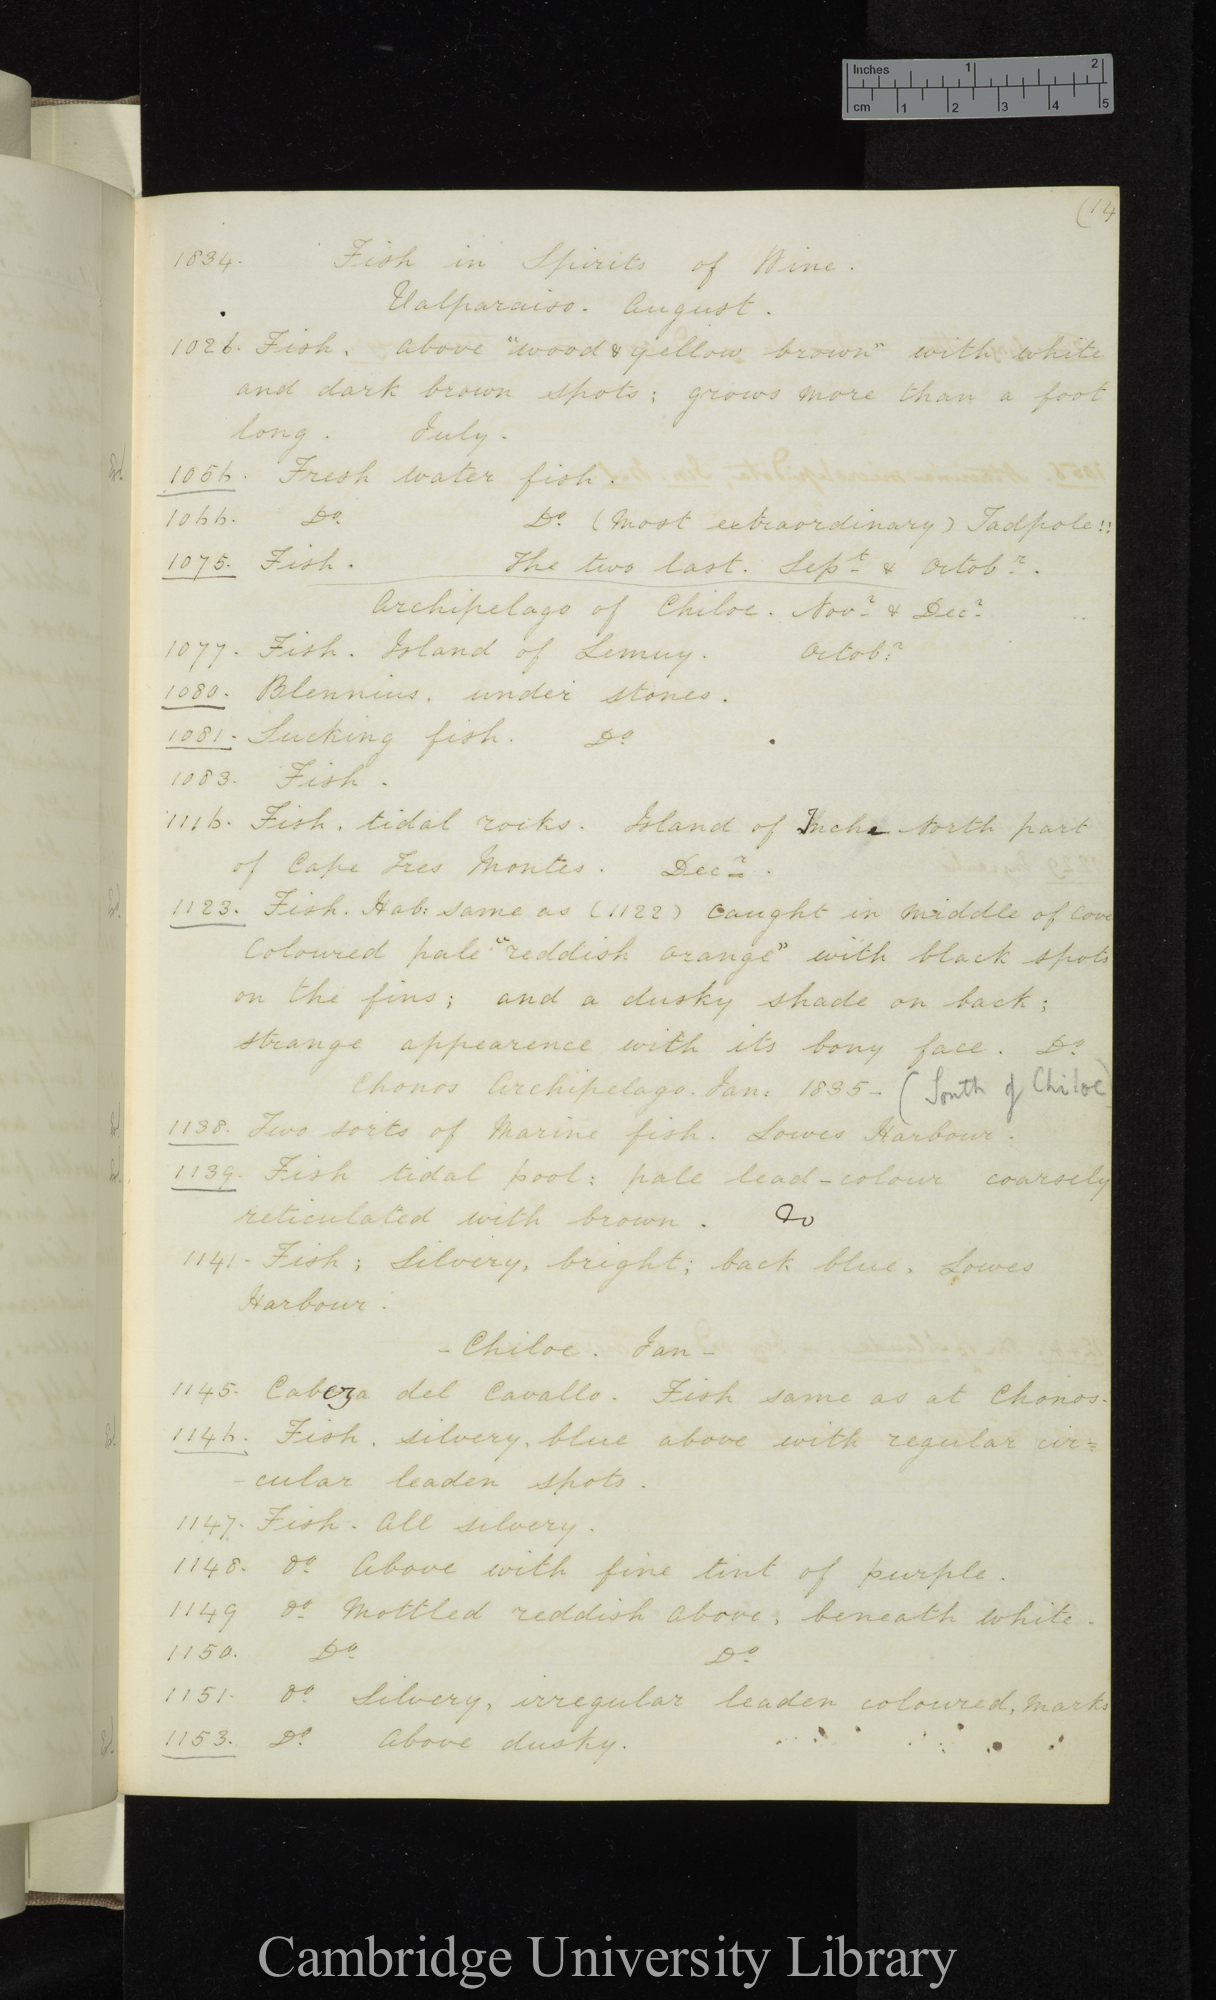 Inches 1 2
cm 1 2 3 4 5
(14
1834. Fish in Spirits of Wine.
Valparaiso. August.
1026. Fish. above "wood & yellow brown" with white
and dark brown spots; grows more than a foot
long. July.
1056. Fresh water fish.
1066. Do. Do. (most extraordinary) Tadpole!!
1075. Fish. The two last. Sept & Octobr.
Archipelago of Chiloe. Novr & Decr
1077. Fish. Island of Lemuy. Octobr
1080. Blennius. under stones.
1081. Sucking fish. Do
1083. Fish.
1116. Fish. tidal rocks. Island of Inche North part
of Cape Tres Montes. Decr.
1123. Fish. Hab: same as (1122) caught in middle of cove
Coloured pale "reddish orange" with black spots
on the fins; and a dusky shade on back;
strange appearence with its bony face. Do
Chonos Archipelago. Jan: 1835 - (South of Chiloe)
1138. Two sorts of Marine fish. Lowes Harbour.
1139. Fish tidal pool: pale lead-colour coarsely
reticulated with brown. Do
1141. Fish; Silvery, bright; back blue. Lowes
Harbour.
- Chiloe. Jan -
1145. Cabeza del Cavallo. Fish same as at Chonos.
1146. Fish. silvery, blue above with regular cir=
-cular leaden spots.
1147. Fish. All silvery.
1148. Do Above with fine tint of purple.
1149 Do Mottled reddish above, beneath white.
1150. Do Do
1151. Do Silvery, irregular leaden coloured, marks
1153. Do Above dusky.
Cambridge University Library